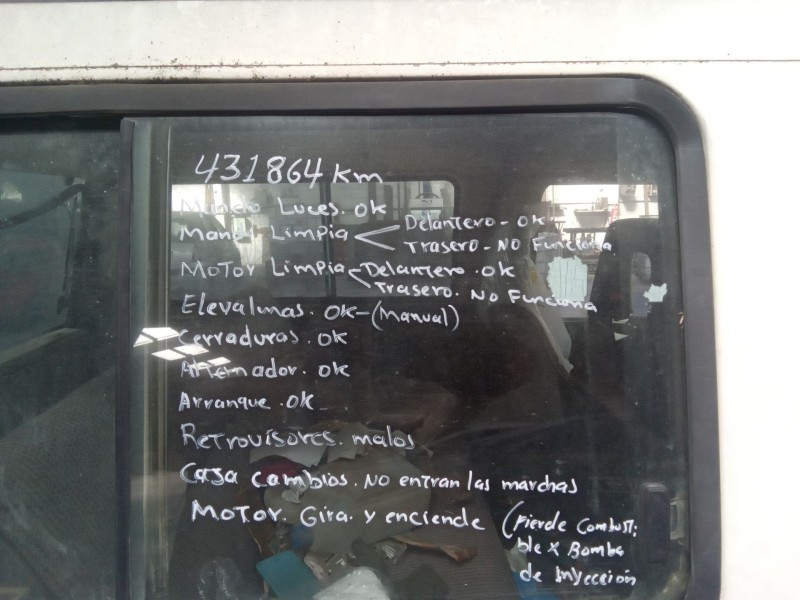 431864 Km
Mando Luces. OK
Mando Limpia Delantero - OK
Trasero - NO Funciona
MOTOR Limpia Delantero. OK
Trasero. NO Funciona
Elevalunas. OK - (Manual)
Cerraduras. OK
Alternador. OK
Arranque. OK
Retrovisores. malos
Caja cambios. NO entran las marchas
MOTOR. Gira. y enciende (Pierde Combusti
ble X Bomba
de Inyección